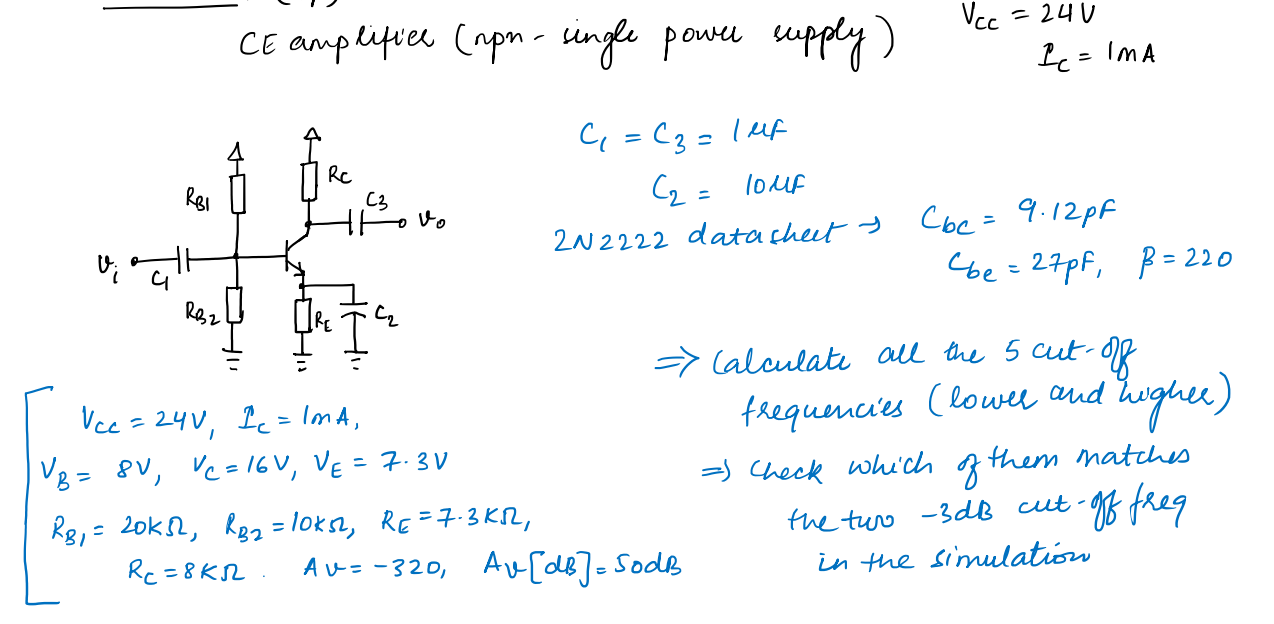 CE amplifier (npn - single power supply)
Vcc = 24V
Ic = 1mA
C1 = C3 = 1μF
C2 = 10μF
2N2222 datasheet → Cbc = 9.12pF
Cbe = 27pF, β = 220
RB1
RC
C3
vo
vi
C1
RB2
RE
C2
⇒ Calculate all the 5 cut-off
frequencies (lower and higher)
⇒ Check which of them matches
the two -3dB cut-off freq
in the simulation
Vcc = 24V, Ic = 1mA,
VB = 8V, Vc = 16V, VE = 7.3V
RB1 = 20kΩ, RB2 = 10kΩ, RE = 7.3kΩ,
Rc = 8kΩ. Av = -320, Av[dB] = 50dB